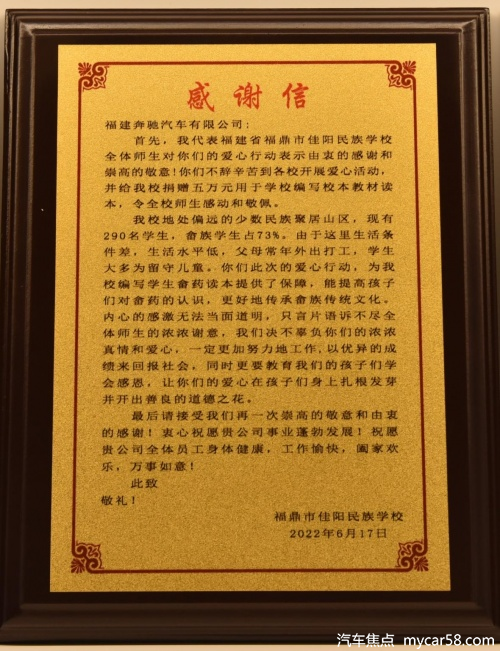 感谢信
福建奔驰汽车有限公司：
首先，我代表福建省福鼎市佳阳民族学校
全体师生对你们的爱心行动表示由衷的感谢和
崇高的敬意！你们不辞辛苦到各校开展爱心活动，
并给我校捐赠五万元用于学校编写校本教材读
本，令全校师生感动和敬佩。
我校地处偏远的少数民族聚居山区，现有
290名学生，畲族学生占73%。由于这里生活条
件差，生活水平低，父母常年外出打工，学生
大多为留守儿童。你们此次的爱心行动，为我
校编写学生畲药读本提供了保障，能提高孩子
们对畲药的认识，更好地传承畲族传统文化。
内心的感激无法当面道明，只言片语诉不尽全
体师生的浓浓谢意，我们决不辜负你们的浓浓
真情和爱心，一定更加努力地工作，以优异的成
绩来回报社会，同时更要教育我们的孩子们学
会感恩，让你们的爱心在孩子们身上扎根发芽
并开出善良的道德之花。
最后请接受我们再一次崇高的敬意和由衷
的感谢！衷心祝愿贵公司事业蓬勃发展！祝愿
贵公司全体员工身体健康，工作愉快，阖家欢
乐，万事如意！
此致
敬礼！
福鼎市佳阳民族学校
2022年6月17日
汽车焦点 mycar58.com